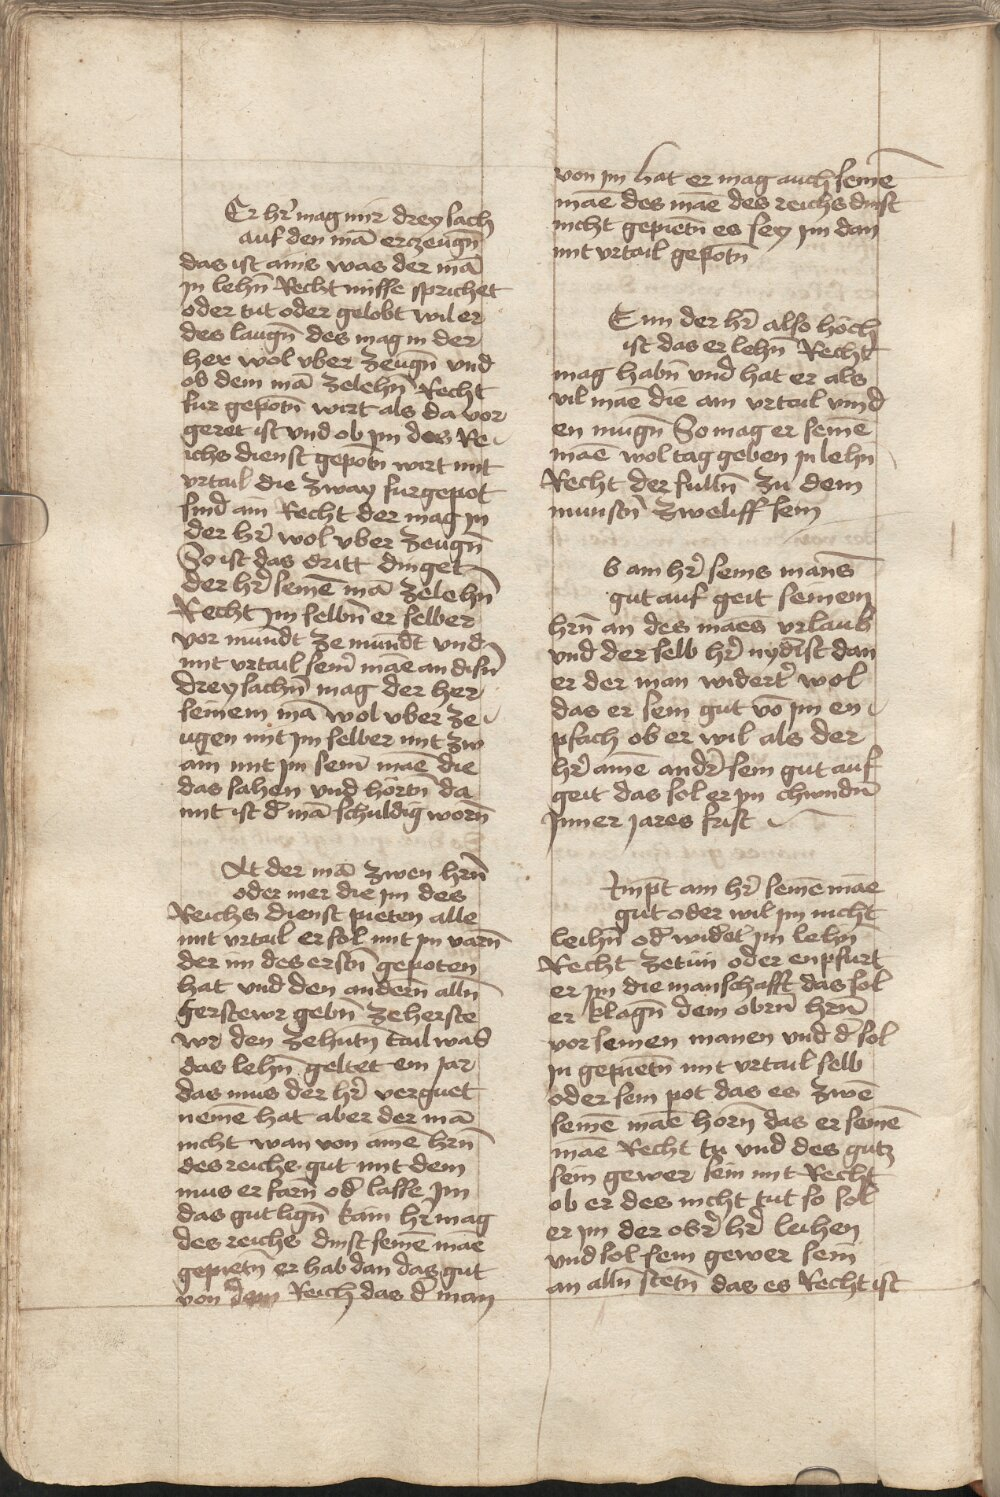 Er hr̄ mag nür drey sach
auf den mā erczeugn̄
das ist ains was der mā
jn lehn̄ Recht misse sprichet
oder tut oder gelobt wil er
des laugn̄ des mag in der
her wol vber zeugn̄ vnd
ob dem mā zelehn̄ Recht
fur gepotn̄ wirt als da vor
geret ist vnd ob jm des Re
ichs dienst gepotn̄ wirt mit
vrtail die zway furgepot
sind ain Recht der mag jn
der hr̄ wol vber zeugn̄
So ist das dritt dinget
der hr̄ seinē mā zelehn̄
Recht jm selbn̄ er selber
vor mundt ze mundt vnd
mit vrtail sein̄ māe an disn̄
drey sachn̄ mag der her
seinem mā wol vber ze
ugen mit jm selber mit zw
ain mit jm sein̄ māe die
das sahen vnd hörtn̄ da
mit ist d̄ mā schuldig worn̄

At der mā zwen hrn̄
oder mer die jm des
Reichs dienst pieten alle
mit vrtail er sol mit jm varn̄
der im des erstn̄ gepoten
hat vnd den andern̄ alln̄
herstewr gebn̄ ze herste
wr den zehntn̄ tail was
das lehn̄ geltet ein jar
das mus der hr̄ verguet
nemē hat aber der mā
nicht wan von ainē hrn̄
des reichs gut mit dem
mus er farn̄ od̄ lasse jm
das gut lign̄ kain hr̄ mag
des reichs dinst seinē māe
gepietn̄ er hab dan das gut
von dem Reich das d̄ man
von jm hat er mag auch seinē
māe des māe des reichs dinst
nicht gepietn̄ es sey jm dan
mit vrtail gepotn̄

Enn der hr̄ also hoch
ist das er lehn̄ Recht
mag habn̄ vnd hat er als
vil māe die ain vrtail vind
en mugn̄ So mag er seinē
māe wol tag geben jn lehn
Recht der fulln̄ zu dem
minstn̄ zweliff sein

b ain hr̄ seins mans
gut auf geit seinem
hrn̄ an des māes vrlaub
vnd der selb hr̄ nydist dan
er der man widert̄ wol
das er sein gut vō jm en
pfach ob er wil als der
hr̄ ainē andr̄ sein gut auf
geit das sol er jm chundn̄
Jnner jares frist

Jmpt ain hr̄ seinē māe
gut oder wil jm nicht
leihn̄ od̄ widet jm lehn̄
Recht zetün oder enpfurt
er jm die manschafft das sol
er klagn̄ dem obrn̄ hrn̄
vor seinen manen vnd d̄ sol
jn gepietn̄ mit vrtail selb
oder sein pot das es zwē
seinē māe horn̄ das er seinē
māe Recht tu vnd des gutz
sein gewer sein mit Recht
ob er des nicht tut so sol
er jm der obr̄ hr̄ leihen
vnd sol sein gewer sein
an alln̄ stetn̄ das es Recht ist